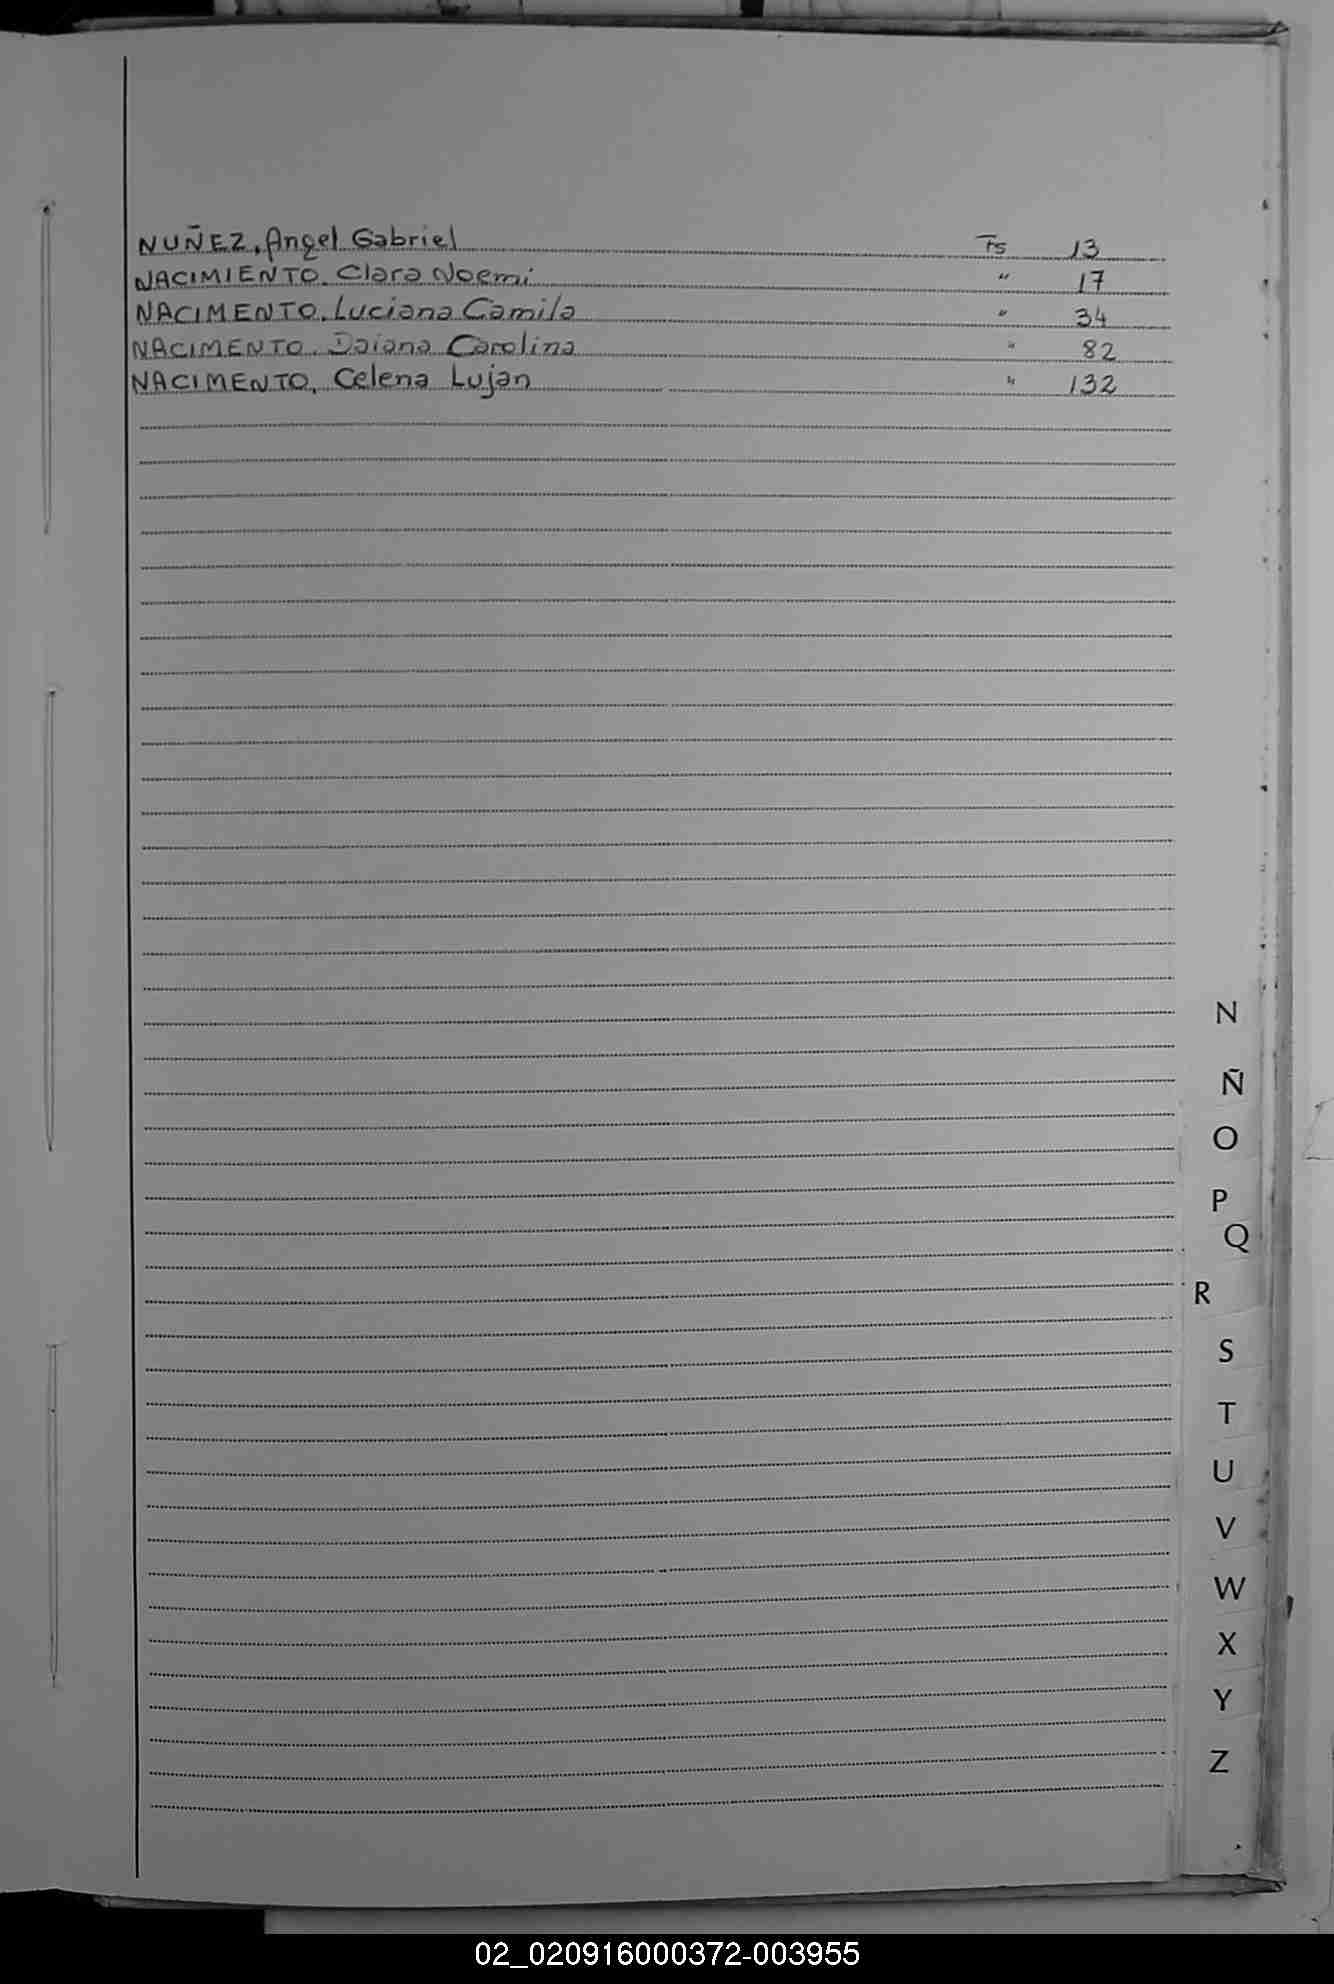 NUÑEZ, Angel Gabriel Fs 13
NACIMIENTO. Clara Noemi " 17
NACIMENTO. Luciana Camila " 34
NACIMENTO. Daiana Carolina " 82
NACIMENTO, Celena Lujan " 132
N
Ñ
O
P
Q
R
S
T
U
V
W
X
Y
Z
02_020916000372-003955